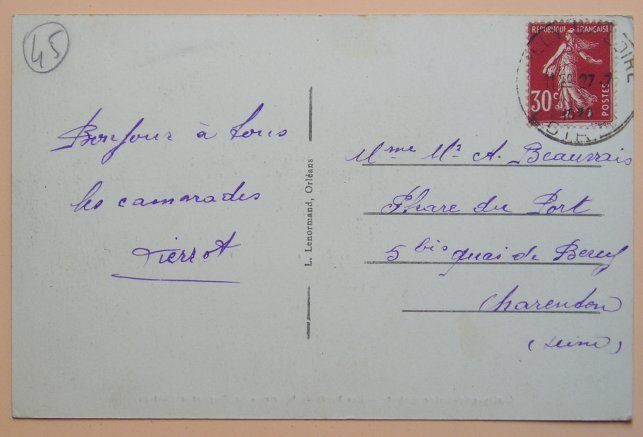 45
Bonjour à tous
les camarades
Pierrot
L. Lenormand, Orléans
REPUBLIQUE FRANÇAISE
30c
POSTES
LOIRE
27-7
Mme Mr A. Beauvais
Phare du Port
5 bis quai de Bercy
Charenton
(Seine)